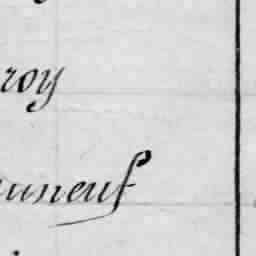 roy
uneuf